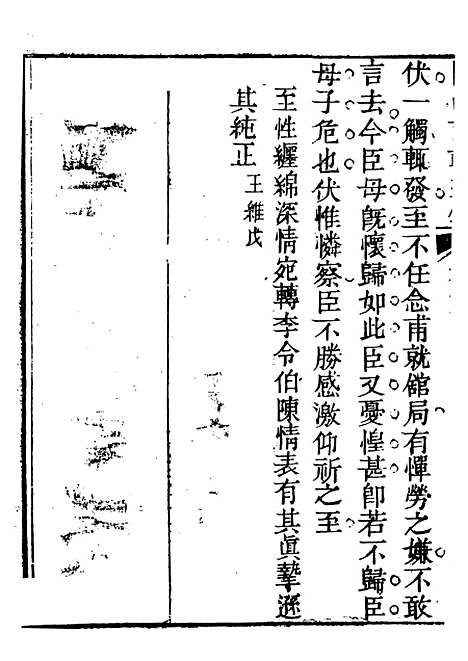 伏一觸輒發至不任念甫就舘局有憚勞之嫌不敢
言去今臣母旣懷歸如此臣又憂惶甚卽若不歸臣
母子危也伏惟憐察臣不勝感激仰祈之至
至性纏綿深情宛轉李令伯陳情表有其眞摯遜
其純正 王維戊